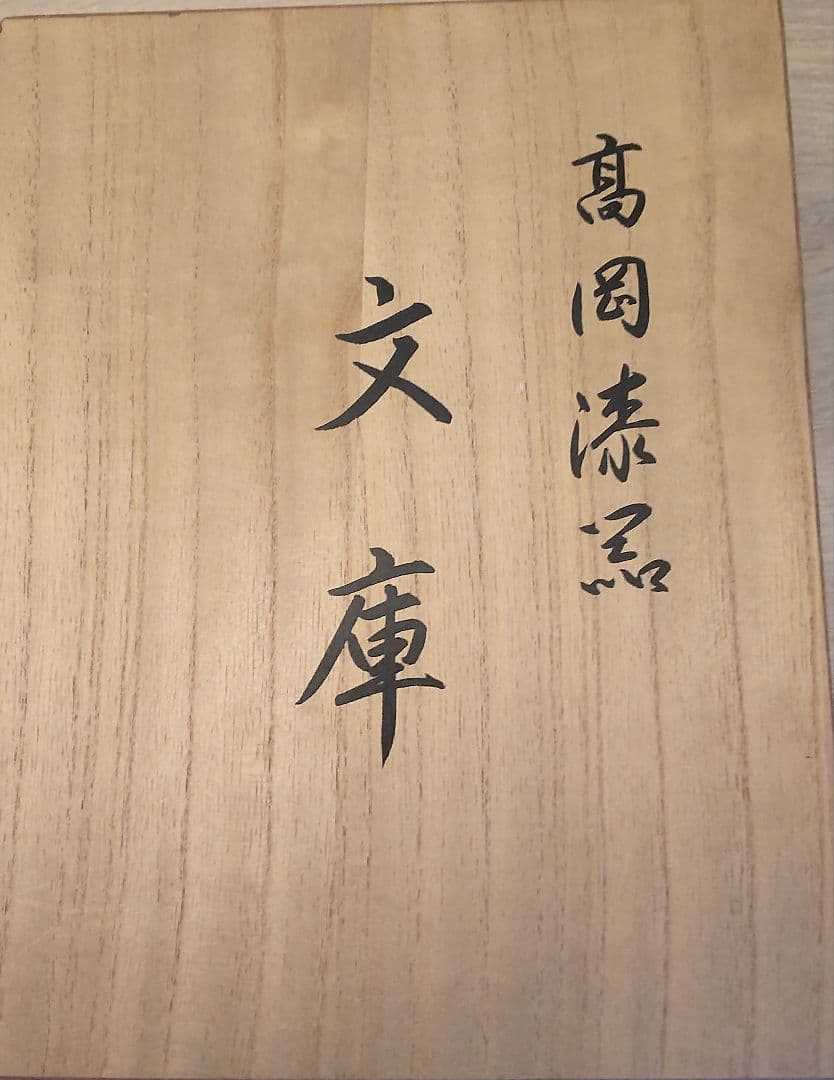 髙岡漆器
文庫